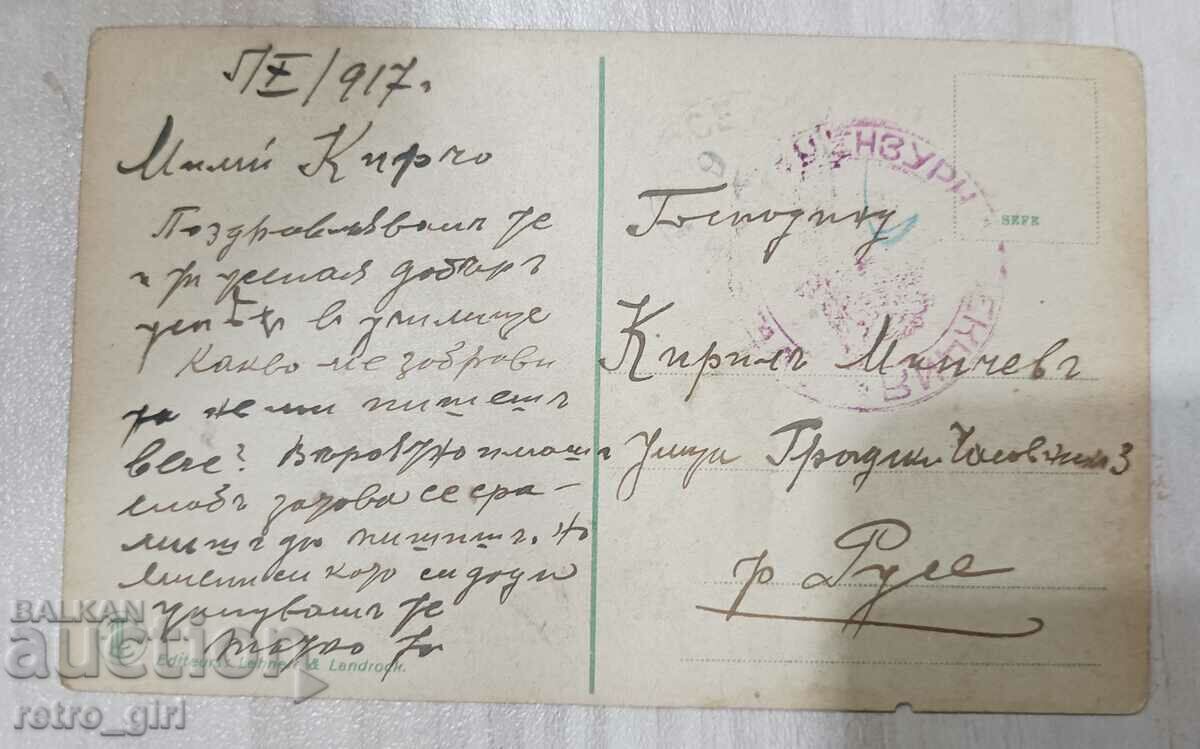 IX/917г.
Мили Кирчо
Поздравлявамъ те
и ти желая добъръ
успѣх в училище
Какво ме забрави
та не ми пишешъ
вече? Вероятно имаш
слабъ затова се сра-
мишъ да пишиш. Но
си дода
Целувамъ те
татко ти
Editeurs Lehnert & Landrock.
ЦЕНЗУРНА
СЕКЦИЯ
SEFE
Господину
Кирилъ Минчевъ
Улица Градски Часовник 3
гр Русе
BALKAN
auction
retro_girl